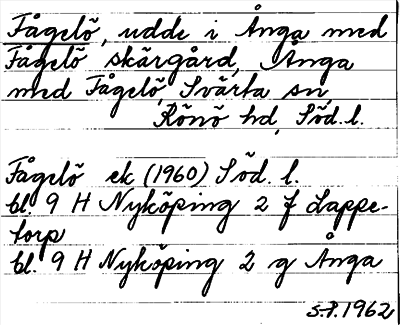 Fågelö, udde i Ånga med
Fågelö skärgård, Ånga
med Fågelö, Svärta sn,
Rönö hd, Söd. l.
Fågelö ek (1960) Söd. l.
bl. 9 H Nyköping 2 f Lappe-
torp
bl. 9 H Nyköping 2 g Ånga
S.P. 1962